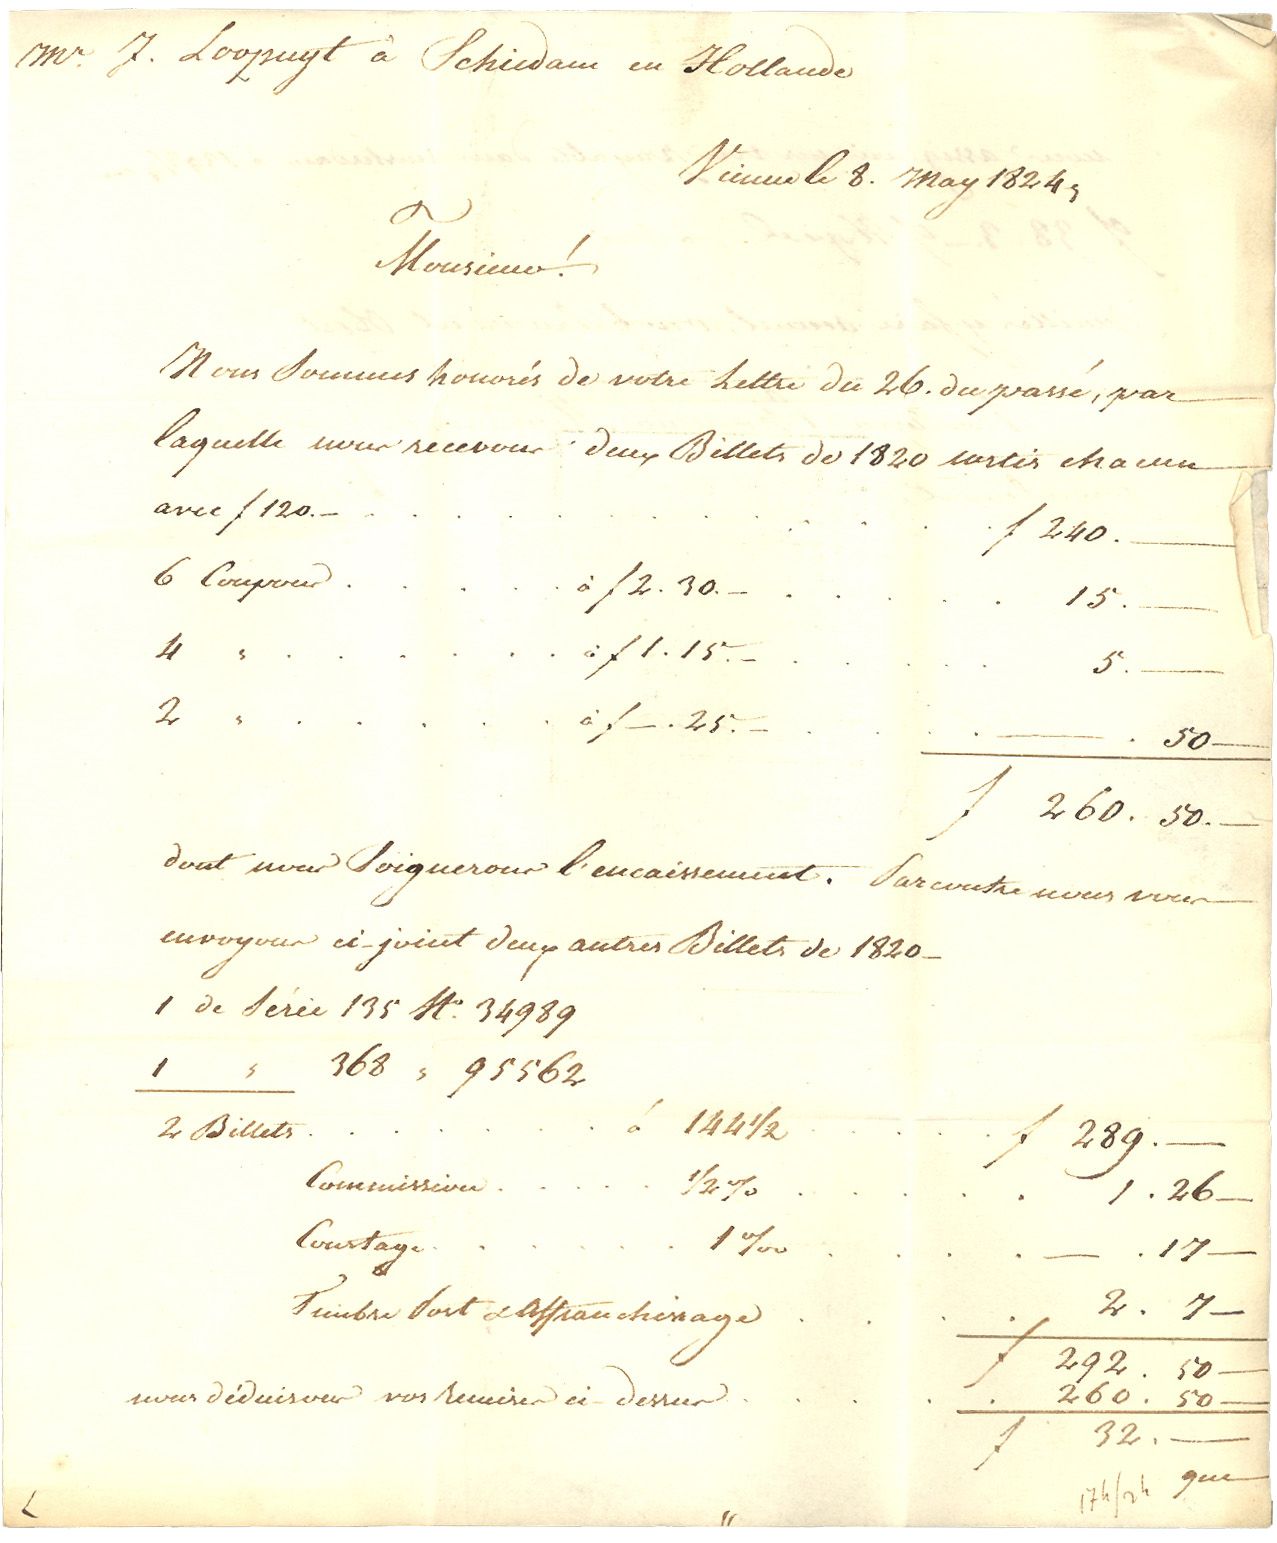 Mr. J. Loopuyt à Schiedam en Hollande
Vienne le 8. May 1824,
Monsieur!
Nous sommes honorés de votre Lettre du 26. du passé, par
laquelle nous recevons deux Billets de 1820 sortis chacun
avec f 120.— . . . . . . . . . . . f 240.—
6 Coupons . . . . . à f 2.30.— . . . . . 15.—
4 " . . . . . . à f 1.15.— . . . . 5.—
2 " . . . . . à f —.25.— . . . . — . 50—
f 260. 50.—
dont nous soignerons l'encaissement. Parcontre nous vous
envoyons ci-joint deux autres Billets de 1820—
1 de Série 135 No. 34989
1 " 368 " 95562
2 Billets . . . . . . . à 144 1/2 . . . . f 289.—
Commission . . . . . 1/2 % . . . . . 1.26—
Courtage . . . . . . 1 ‰ . . . . — .17—
Timbre Port & Affranchissage . . . . 2. 7—
f 292. 50—
nous déduisons vos remises ci-dessus . . . . . 260. 50—
f 32.—
que